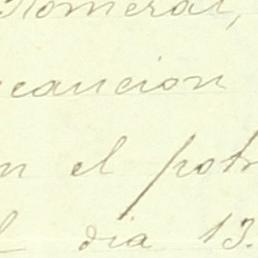 Romeral,
caucion
n el potr
l dia 13.